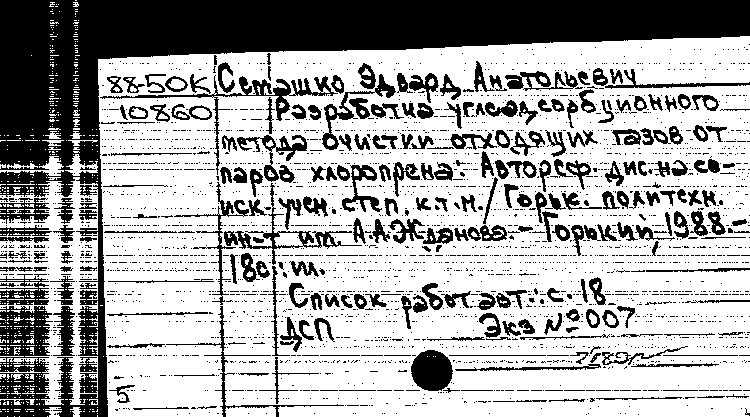 88-50К Сеташко Эдвард Анатольевич
10860 Разработка углеадсорбционного
метода очистки отходящих газов от
паров хлоропрена: Автореф. дис. на со-
иск. учен. степ. к.т.н. / Горьк. политехн.
ин-т им. А.А. Жданова. - Горький, 1988. -
18с.: ил.
Список работ авт.: с. 18
ДСП Экз № 007
5